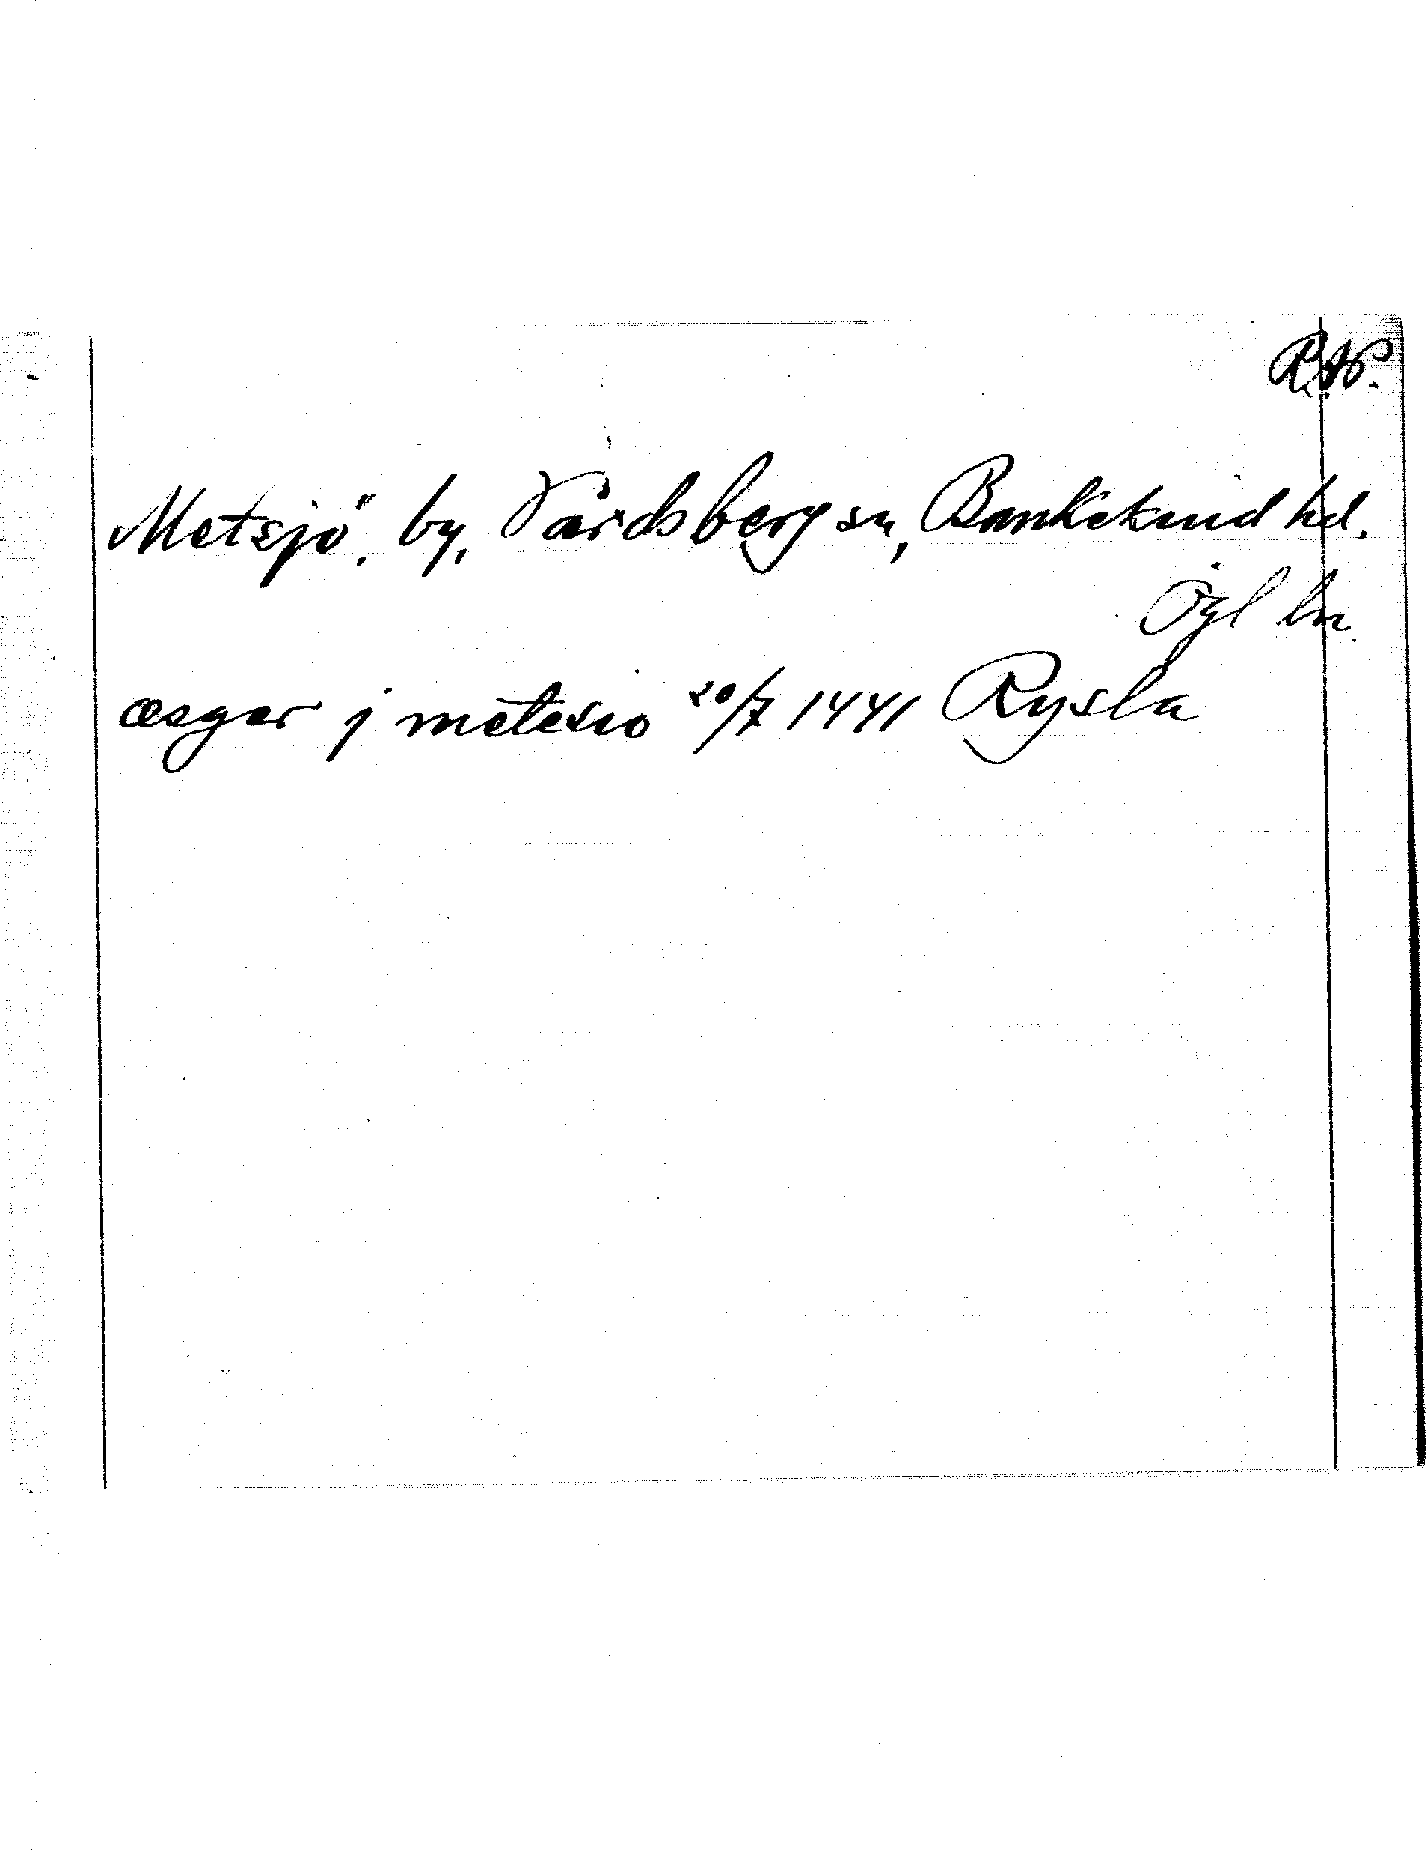 R.N.
Metsjö, by, Vårdsberg sn, Bankekind hd.
Ögl ln
æsger j metesio 20/7 1441 Rysla